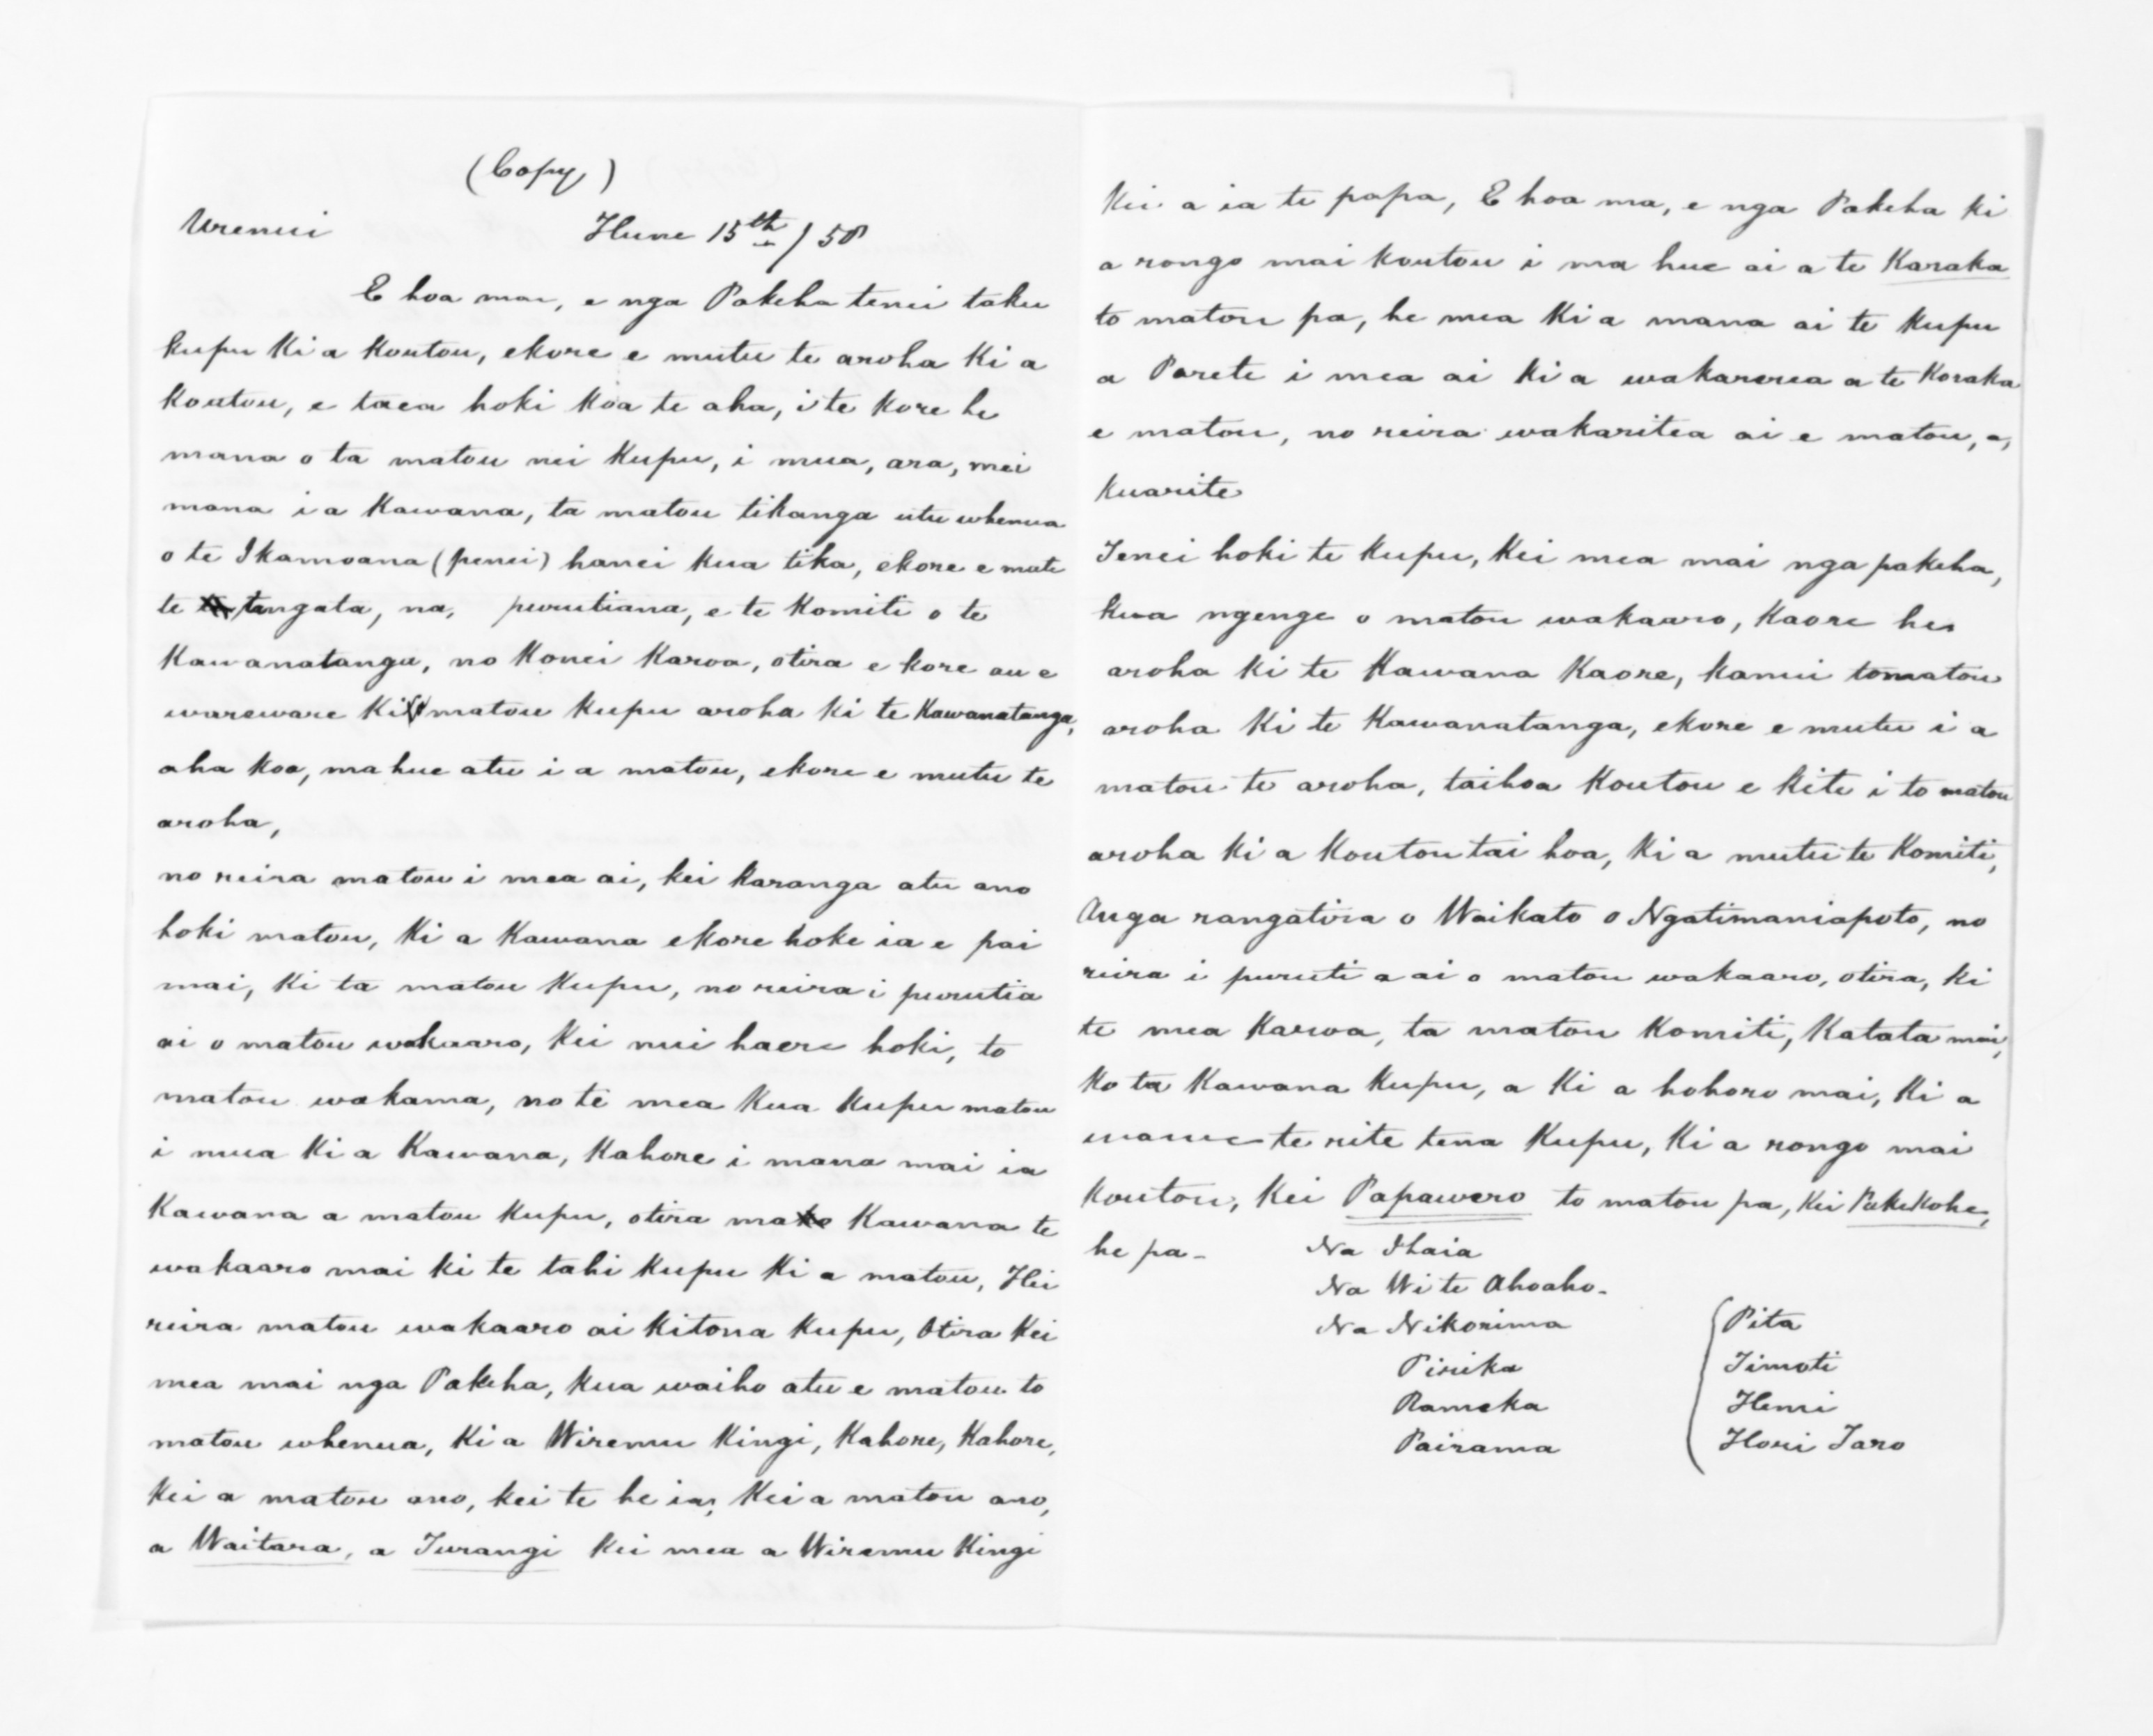 (Copy)
Urenui Hune 15th / 58
E hoa ma, e nga Pakeha tenei taku
kupu Ki a koutou, ekore e mutu te aroha Ki a
koutou, e taea hoki koa te aha, i te kore he
mana o ta matou nei kupu, i mua, ara, mei
mana i a Kawana, ta matou tikanga utu whenua
o te Ikamoana (penei) hanei kua tika, ekore e mate
te tangata, na, purutiana, e te Komiti o te
Kawanatanga, no Konei Karoa, otira e kore au e
wareware Ki matou kupu aroha ki te Kawanatanga,
aha koa, mahue atu i a matou, ekore e mutu te
aroha,
no reira matou i mea ai, kei karanga atu ano
hoki matou, Ki a Kawana ekore hoke ia e pai
mai, Ki ta matou Kupu, no reira i purutia
ai o matou wakaaro, Kei nui haere hoki, to
matou wakama, no te mea Kua Kupu matou
i mua Ki a Kawana, Kahore i mana mai ia
Kawana a matou kupu, otira ma Kawana te
wakaaro mai ki te tahi kupu Ki a matou, Hei
reira matou wakaaro ai kitona kupu, Otira Kei
mea mai nga Pakeha, Kua waiho atu e matou to
matou whenua, Ki a Wiremu Kingi, Kahore, Kahore,
Kei a matou ano, kei te he ia, Kei a matou ano,
a Waitara, a Turangi Kei mea a Wiremu Kingi
Kei a ia te papa, E hoa ma, e nga Pakeha Ki
a rongo mai koutou i ma hue ai a te Karaka
to matou pa, he mea Ki a mana ai te kupu
a Parete i mea ai Ki a wakarerea a te Karaka
e matou, no reira wakaritea ai e matou, a,
Kuarite
Tenei hoki te kupu, Kei mea mai nga pakeha,
Kua ngenge o matou wakaaro, Kaore he
aroha Ki te Kawana Kaore, kanui tomatou
aroha Ki te Kawanatanga, ekore e mutu i a
matou te aroha, taihoa Koutou e Kite i to matou
aroha Ki a Koutou tai hoa, Ki a mutu te Komiti,
Anga rangatira o Waikato o Ngatimaniapoto, no
reira i puruti a ai o matou wakaaro, otira, Ki
te mea Karoa, ta matou Komiti, Katata mai,
Ko ta Kawana kupu, a Ki a hohoro mai, Ki a
te rite tena Kupu, Ki a rongo mai
Koutou, Kei Papawero to matou pa, Kei Pukekohe,
he pa -
Na Ihaia
Na Wi te Ahoaho.
Na Nikorima
Piruka
Rameka
Pairama
Pita
Timoti
Hemi
Hori Taro